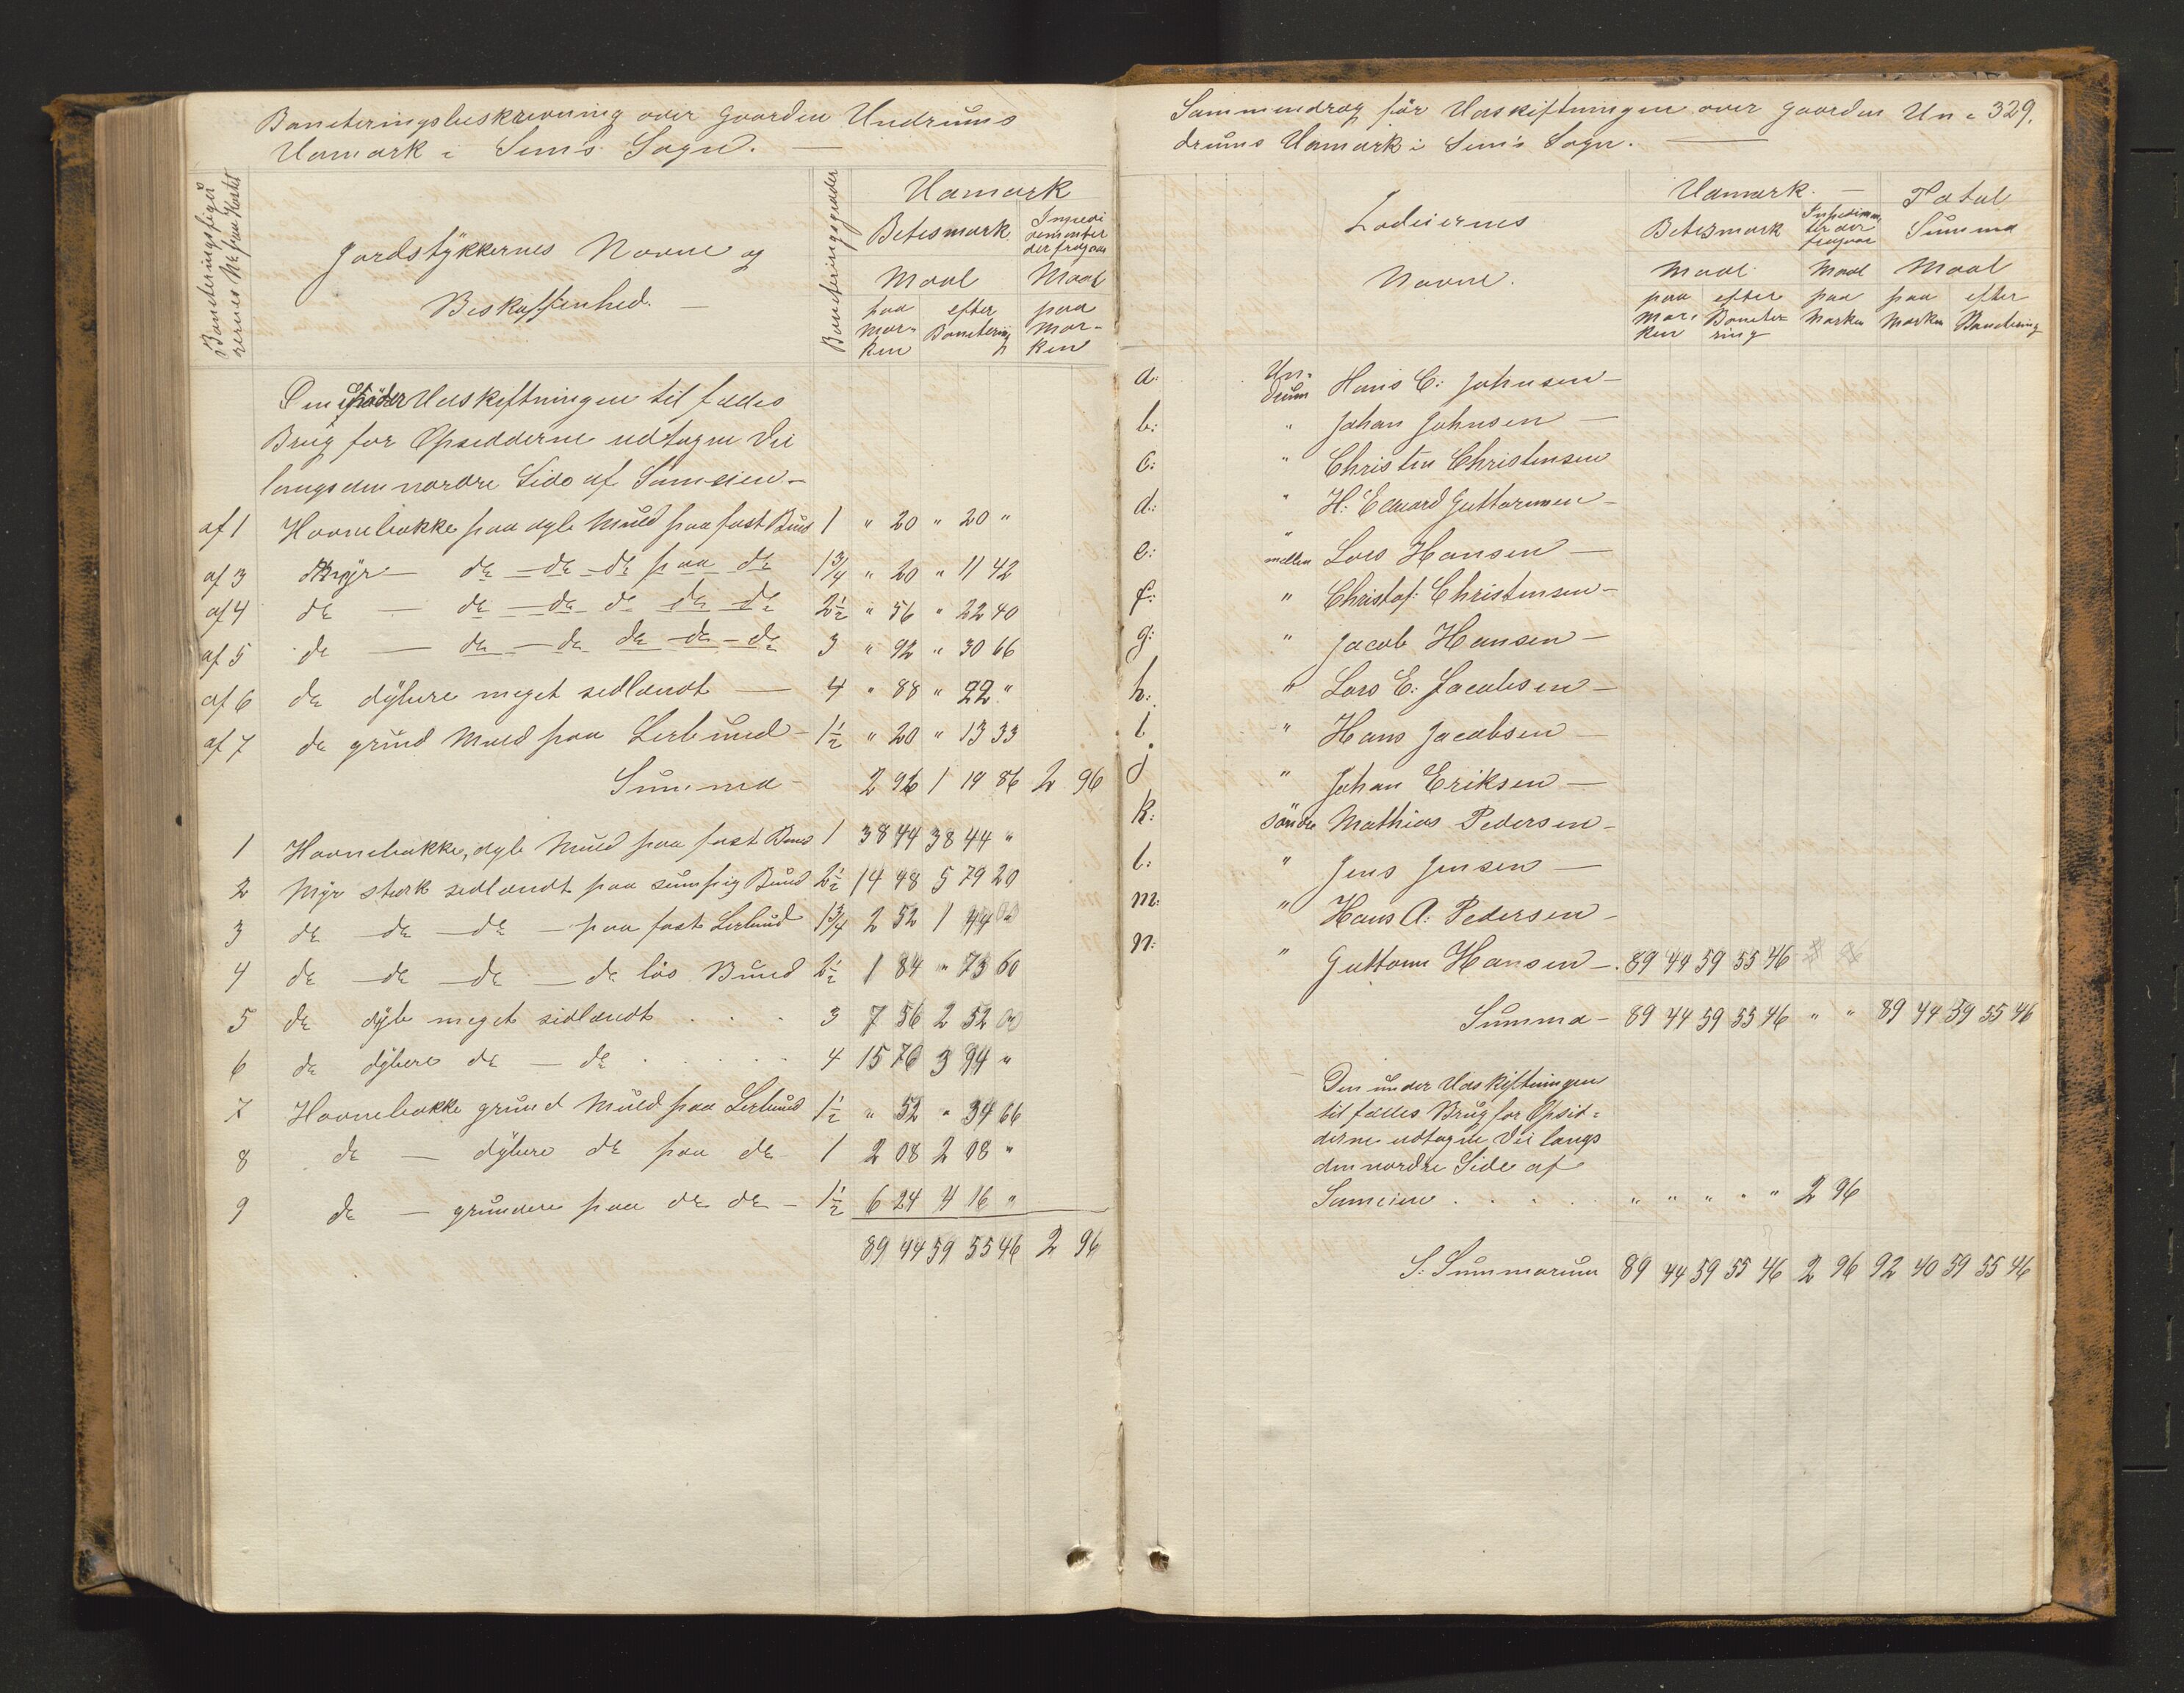 Boneteringsbeskrivning over Gaarden Undrums
Udmark i Sem's Sogn. —
Boneteringsfigurerernes No paa Kartet
Jordstykkernes Navne og
Beskaffenhed. —
Boneteringsgrader
Udmark
Betesmark
Impedimenter
der fragaa
Maal
Maal
paa
Marken
efter
Bonetering
paa
Marken
Den under Udskiftningen til fælles
Brug for Opsidderne udtagne Vei
langs den nordre Side af Sameien —
af 1 Havnebakke paa dyb Muld paa fast Bund 1 " 20 " 20 "
af 3 Myr — do — do — do paa do 1¾ " 20 " 11 42
af 4 do — do — do do do do 2½ " 56 " 22 40
af 5 do — do — do do — do — do 3 " 92 " 30 66
af 6 do dybere meget sidlændt — 4 " 88 " 22 "
af 7 do grund Muld paa Lerbund — 1½ " 20 " 13 33
Summa — 2 96 1 19 86 2 96
1 Havnebakke, dyb Muld paa fast Bund 1 38 44 38 44 "
2 Myr sterk sidlændt paa sumpig Bund 2½ 14 48 5 79 20
3 do — do — do — paa fast Lerbund 1¾ 2 52 1 44 00
4 do — do — do — do løs Bund 2½ 1 84 " 73 60
5 do dyb meget sidlændt . . . 3 7 56 2 52 00
6 do dybere do — do . . . . . 4 15 76 3 94 "
7 Havnebakke grund Muld paa Lerbund 1½ " 52 " 34 66
8 do — dybere do paa do 1 2 08 2 08 "
9 do — grundere paa do do — 1½ 6 24 4 16 "
89 44 59 55 46 2 96
Sammendrag før Udskiftningen over Gaarden Un- 329.
drums Udmark i Sem's Sogn. —
Lodeiernes
Navne.
Udmark. —
Betesmark
Impedimenter der
fragaar
Total
Summa
Maal
Maal
Maal
paa
Marken
efter
Bonetering
paa
Marken
paa
Marken
efter
Bonetering
a: Undrum Hans C: Johnsen —
b: " Johan Johnsen —
c: " Christen Christensen
d: " H: Edvard Guttormsen —
e: " mellem Lars Hansen —
f: " Christof: Christensen —
g: " Jacob Hansen —
h: " Lars E: Jacobsen —
i " Hans Jacobsen —
j " Johan Eriksen —
k: søndre Mathias Pedersen —
l: " Jens Jensen —
m: " Hans A: Pedersen —
n: " Guttorm Hansen — 89 44 59 55 46
Summa — 89 44 59 55 46 " " 89 44 59 55 46
Den under Udskiftningen
til fælles Brug for Opsid-
derne udtagne Vei langs
den nordre Side af
Sameien . . . . " " " " " 2 96
S: Summarum 89 44 59 55 46 2 96 92 40 59 55 46